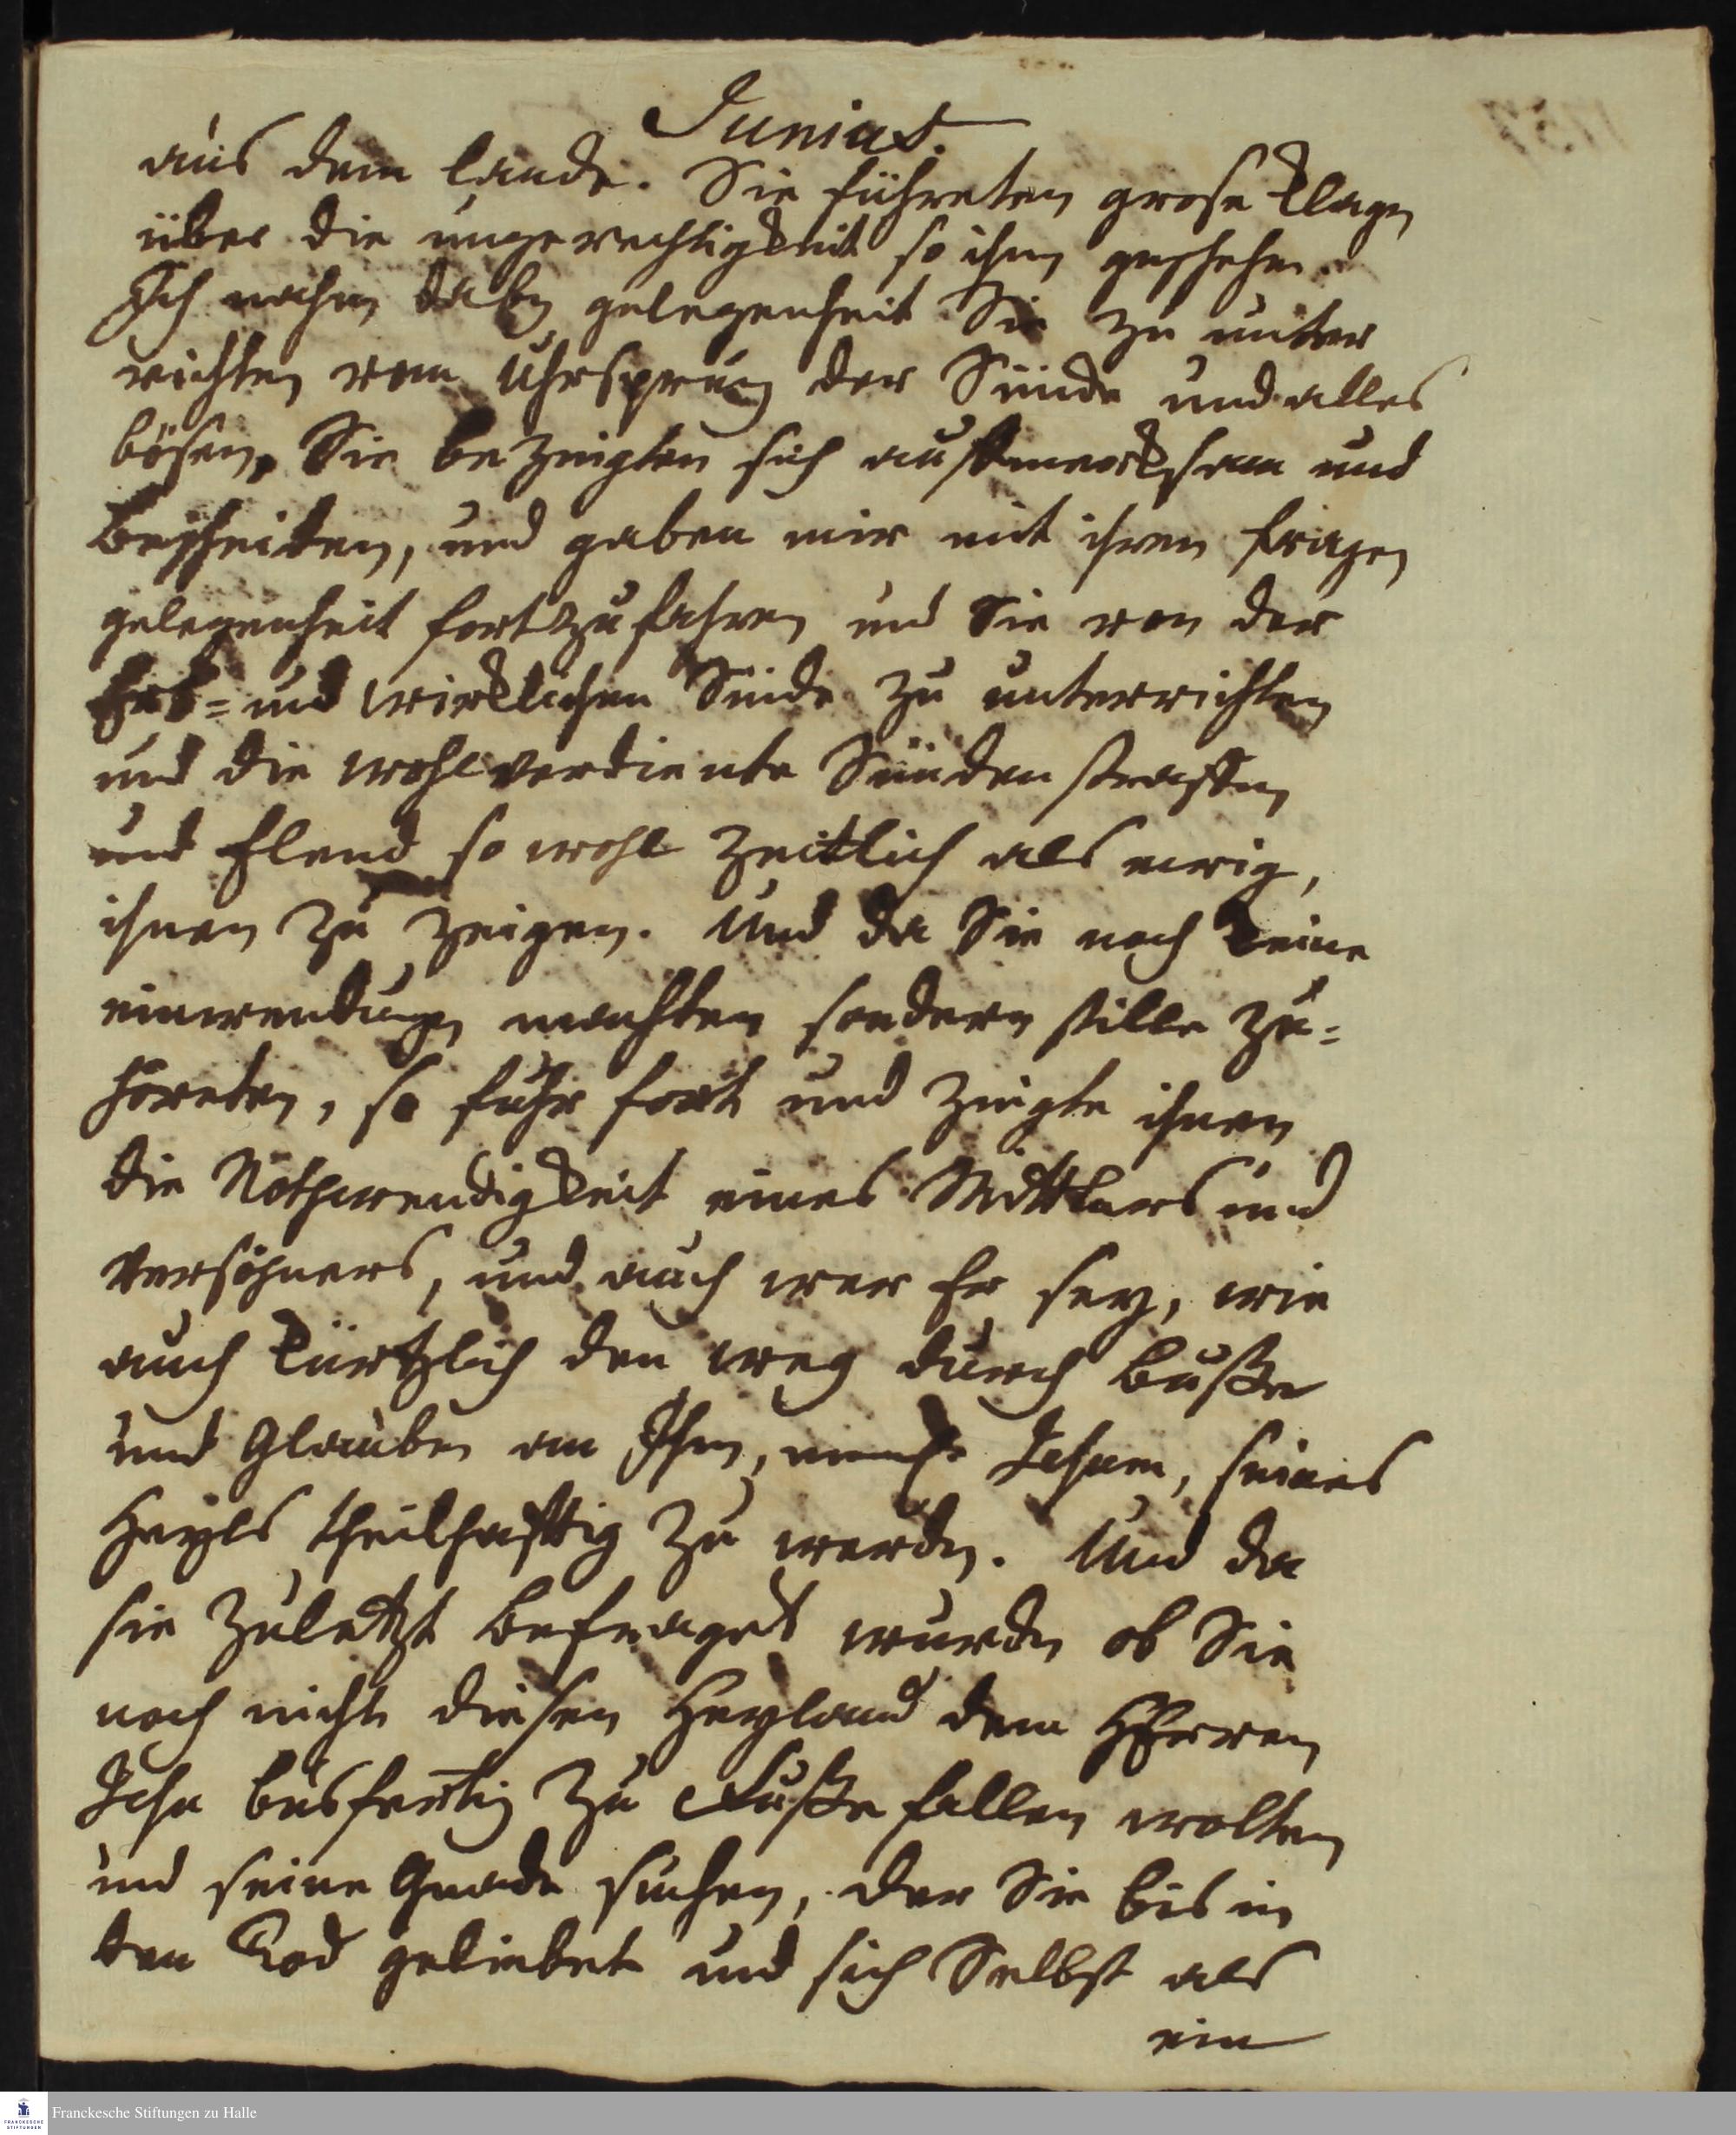 Junius.
aus dem Lande. Sie führeten grose Klagen
über die ungerechtigkeit so ihn geschehen.
Ich nahm daby gelegenheit Sie zu unter
richten vom Uhrsprung der Sünde und alles
bösen. Sie bezeugten sich auffmercksam und
bescheiden, und gaben mir mit ihren fragen
gelegenheit fortzufahren und Sie von der
Erb= und wircklichen Sünde zu unterrichten
und die wohlverdiente Sünden straffen
und Elend so wohl zeitlich als ewig,
ihnen zu zeigen. Und da Sie noch keine
einwendungen machten sondern stille zu=
höreten, so fuhr fort und zeigte ihnen
die Nothwendigkeit eines Mittlers und
versöhners, und auch wer Er sey, wie
auch kürtzlich den weg durch Buße
und Glauben an Ihn, Jesum, seines
Heyls theilhafftig zu werden. Und da
sie zuletzt befraget wurden ob Sie
noch nicht diesen Heyland dem HErren
Jesu busfertig zu Fuße fallen wolten
und seine Gnade suchen, der Sie bis in
den Tod geliebet und sich Selbst als
ein
Franckesche Stiftungen zu Halle